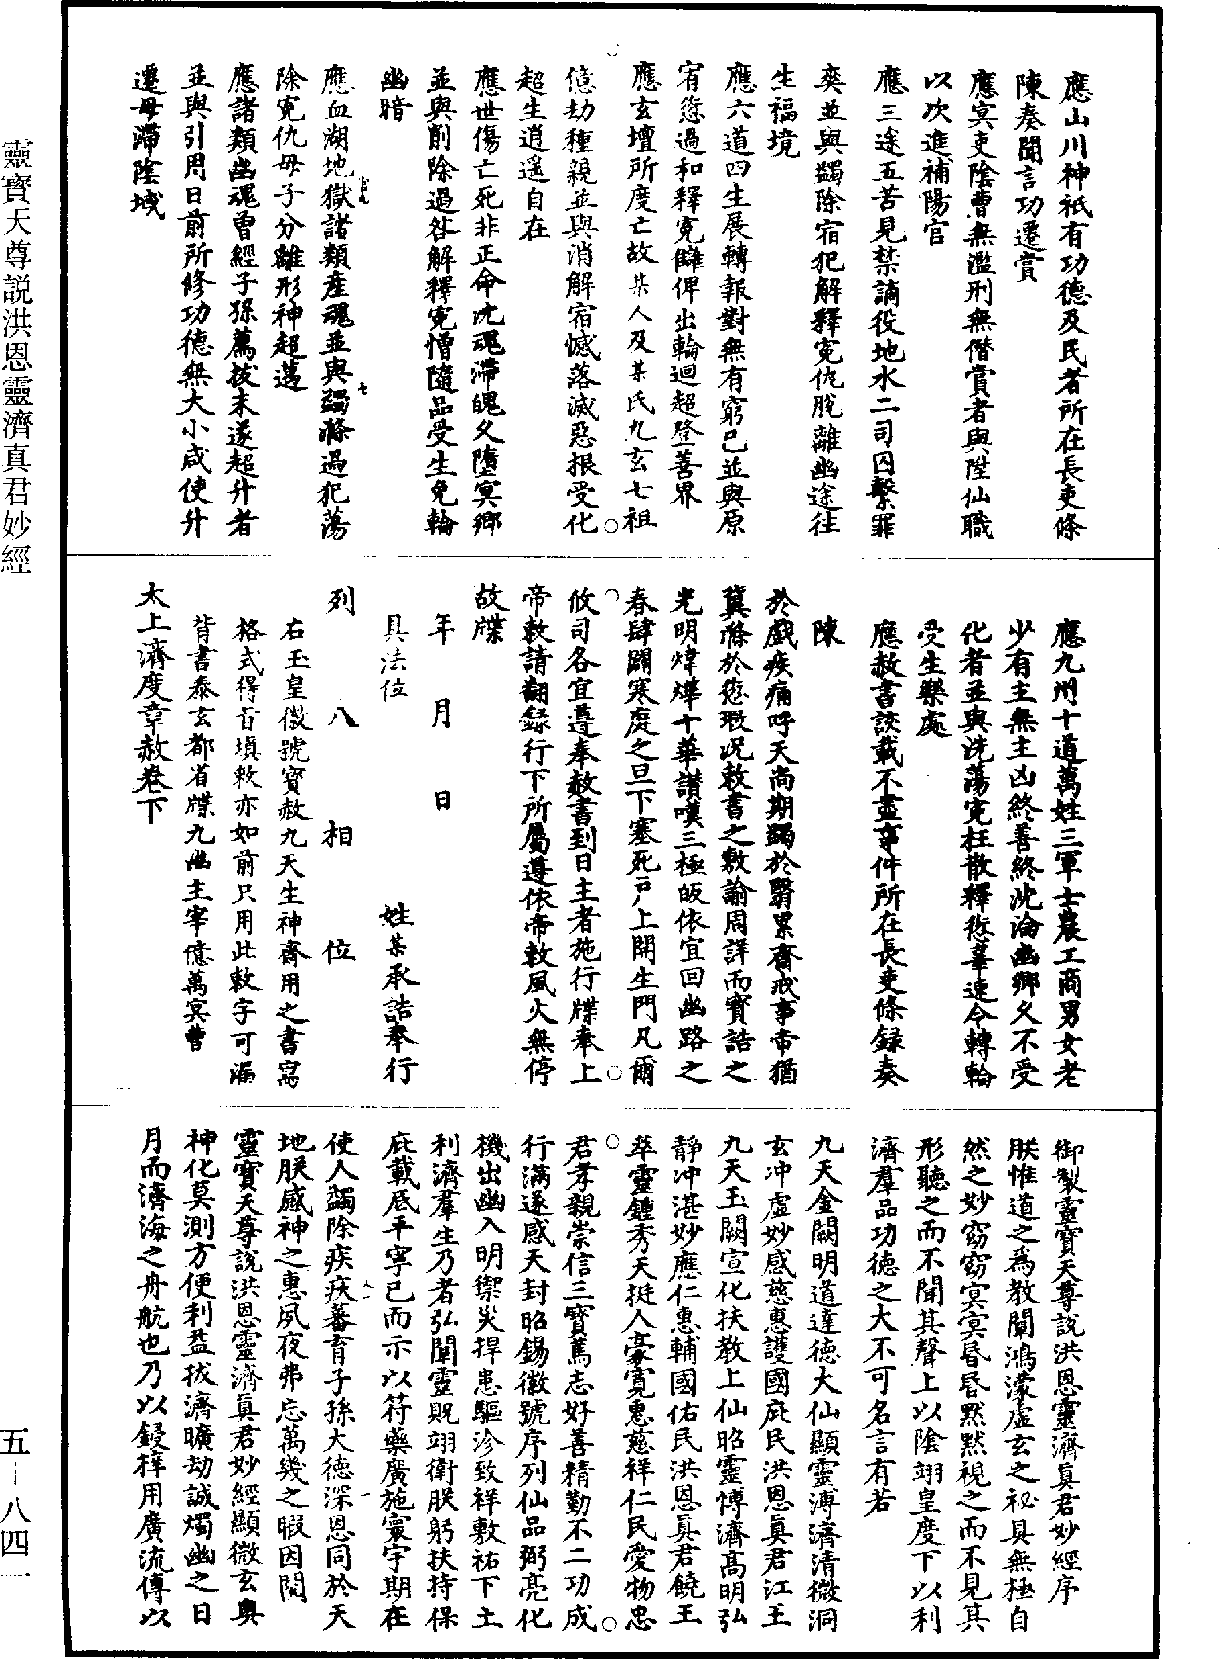 應山川神祇有功德及民者所在長吏條
陳奏聞言功遷賞
應冥吏陰曹無濫刑無僭賞者與陞仙職
以次進補陽官
應三途五苦見禁謫役地水二司囚繫罪
爽並與蠲除宿犯解釋冤仇脫離幽途往
生福境
應六道四生展轉報對無有窮已並與原
宥愆過和釋冤讎俾出輪迴超登善界
應玄壇所度亡故某人及某氏九玄七祖
億劫種親並與消解宿憾落滅惡根受化
超生逍遥自在
應世傷亡死非正命沈魂滯魄久墮冥鄉
並與削除過咎解釋冤憎隨品受生免輪
幽暗
應血湖地獄諸類產魂並與蠲滌過犯蕩
除冤仇母子分離形神超邁
應諸類幽魂曾經子孫薦拔未遂超升者
並與引周日前所修功德無大小咸使升
遷毋滯陰域
應九州十道萬姓三軍士農工商男女老
少有主無主凶終善終沈淪幽鄉久不受
化者並與洗蕩冤枉散釋愆辜速令轉輪
受生樂處
應赦書該載不盡事件所在長吏條録奏
陳
於戲疾痛呼天尚期蠲於翳累齋戒事帝猶
冀滌於愆瑕况敕書之敷諭周詳而寶誥之
光明煒燁十華讃嘆三極皈依宜回幽路之
春肆闢寒庭之旦下塞死戶上開生門凡爾
攸司各宜遵奉赦書到日主者施行牒奉上
帝敕請翻録行下所屬遵依帝敕風火無停
故牒
年 月 日
具法位 姓某承誥奉行
列 八 相 位
右玉皇徽號寶赦九天生神齋用之書寫
格式得旨填敕亦如前只用此敕字可漏
背書泰玄都省牒九幽主宰億萬冥曹
太上濟度章赦卷下
御製靈寶天尊説洪恩靈濟真君妙經序
朕惟道之爲教闡鴻濛虛玄之祕具無極自
然之妙窈窈冥冥昏昏默默視之而不見其
形聽之而不聞其聲上以陰翊皇度下以利
濟羣品功德之大不可名言有若
九天金闕明道達德大仙顯靈溥濟清微洞
玄冲虛妙感慈惠護國庇民洪恩真君江王
九天玉闕宣化扶教上仙昭靈博濟高明弘
靜冲湛妙應仁惠輔國佑民洪恩真君饒王
萃靈鍾秀天挺人豪寛惠慈祥仁民愛物忠
君孝親崇信三寶篤志好善精勤不二功成
行滿遂感天封昭錫徽號序列仙品弼亮化
機出幽入明禦災捍患驅沴致祥敷祐下土
利濟羣生乃者弘闡靈貺翊衛朕躬扶持保
庇載底平寧已而示以符藥廣施寰宇期在
使人蠲除疾疢蕃育子孫大德深恩同於天
地朕感神之惠夙夜弗忘萬幾之暇因閱
靈寶天尊說洪恩靈濟真君妙經顯微玄奥
神化莫測方便利益拔濟曠劫誠燭幽之日
月而濟海之舟航也乃以鋟梓用廣流傳以
靈寶天尊説洪恩靈濟真君妙經
五-八四一